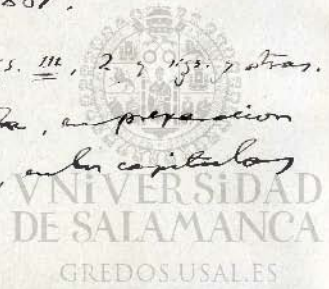 s. III, 2 y sigs. y otras.
, en preparacion
, en los capitulos
VNiVERSiDAD
DE SALAMANCA
GREDOS.USAL.ES